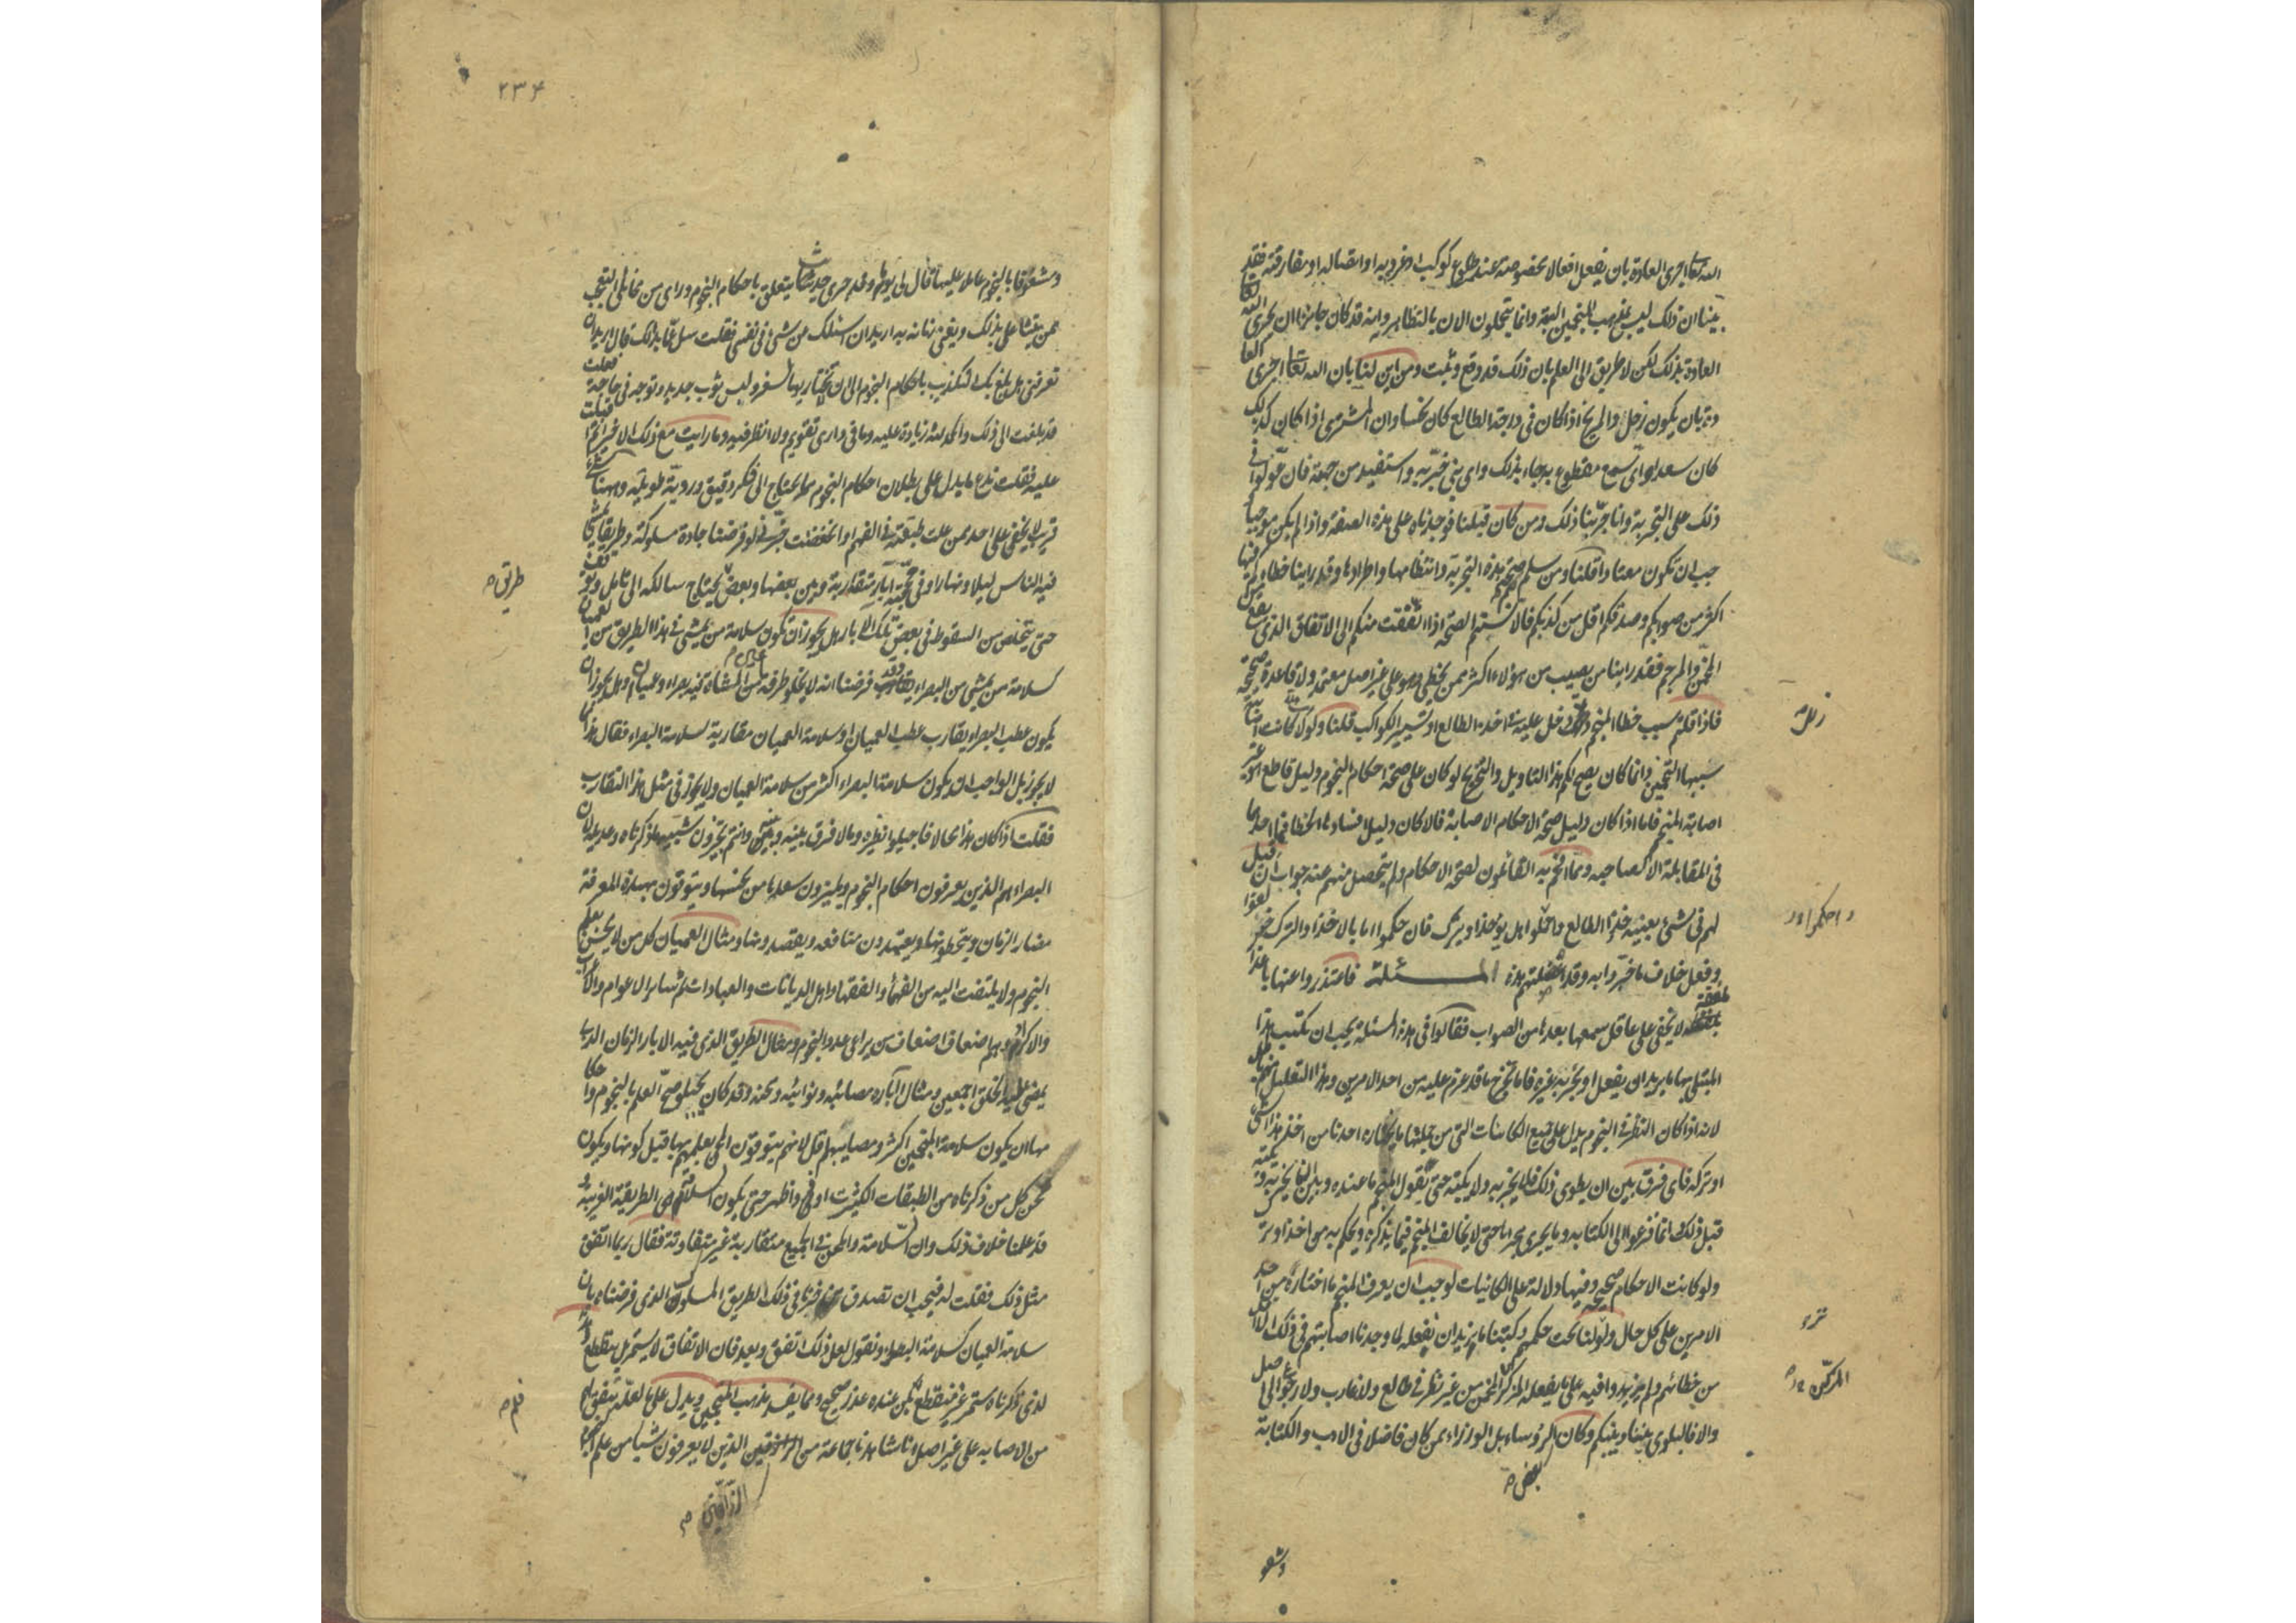 الله تعالى اجرى العادة بان يفعل افعالا مخصوصة عند طلوع كوكب او غروبه او اتصاله او مفارقته فقد
بينا ان ذلك ليس بمذهب المنجمين البتة وانما يتجملون الان بالتظاهر وانه قد كان جائزا ان يجرى الله تعالى
العادة بذلك لكن لا طريق الى العلم بان ذلك قد وقع وثبت ومن اين لنا بان الله تعالى اجرى العا
دة بان يكون زحل والمريخ اذا كان فى درجة الطالع كان نحسا وان المشترى اذا كان كذلك
كان سعدا واى سمع مقطوع به جاء بذلك واى نبى خبر به واستفيد من جهة فان عولوا فى
ذلك على التجربة وانا جربنا ذلك ومن كان قبلنا فوجدناه على هذه الصفة واذا لم يكن موجبا
يجب ان يكون معتادا قلنا ومن سلم لكم صحة هذه التجربة وانتظامها واطرادها وقد راينا خطاءكم فيها
اكثر من صوابكم وصدقكم اقل من كذبكم فالا نسبتم الصحة اذا اتفقت منكم الى الاتفاق الذى يقع من
المخمن والمرجم فقد راينا من يصيب من هؤلاء اكثر ممن يخطى وهو على غير اصل معتمد ولا قاعدة صحيحة
فاذا قلتم سبب خطا المنجم دخل عليه فى اخذ الطالع او تسيير الكواكب قلنا ولم لا كانت اصابته
سببها التخمين وانما كان يصح لكم هذا التاويل والتخريج لو كان على صحة احكام النجوم دليل قاطع هو غير
اصابة المنجم فاما اذا كان دليل صحة الاحكام الاصابة فالا كان دليل فسادها الخطا فما احدهما
فى المقابلة الا كصاحبه ومما افحم به القائلون لصحة الاحكام ولم يتحصل منهم عنه جواب ان قيل
لهم فى شىء بعينه خذوا الطالع واحكموا هل يؤخذ او يترك فان حكموا اما بالاخذ او الترك خولفوا
وفعل خلاف ما خبروا به وقد اعضلتهم هذه المسئلة فاعتذروا عنها باعذار
ملفقة لا يخفى على عاقل سمعها بعدها من الصواب فقالوا فى هذه المسئلة يجب ان يكتب هذا
المبتلى بها ما يريد ان يفعل او يخبر به غيره فانا نخرج ما قد عزم عليه من احد الامرين وهذا التعليل منهم باطل
لانه اذا كان النظر فى النجوم يدل على جميع الكائنات التى من جملتها ما يختاره احدنا من اخذ هذا الشىء
او تركه فاى فرق بين ان يطوى ذلك فلا يخبر به ولا يكتبه حتى يقول المنجم ما عنده وبين ان يخبر به ويكتبه
قبل ذلك وانما فزعوا الى الكتابة وما يجرى مجراها حتى لا يخالف المنجم فيما يذكره ويحكم به من اخذ او ترك
ولو كانت الاحكام صحيحة وفيها دلالة على الكائنات لوجب ان يعرف المنجم ما اختاره من احد
الامرين على كل حال ولو نزلنا تحت حكمهم وكتبنا ما نريد ان نفعله لما وجدنا اصابتهم فى ذلك الا اقل
من خطائهم ولم يزيدوا فيه على ما يفعله المزكن المخمن من غير نظر فى طالع ولا غارب ولا رجوع الى اصل
والا فالبلوى بيننا وبينكم وكان الرؤساء بل الوزراء ممن كان فاضلا فى الادب والكتابة
بعض
زلل
واحكموا
نزلنا
المزكن
ومشعو
٢٣٤
ومشعوفا بالنجوم عاملا عليها قال لى يوما وقد جرى حديث يتعلق باحكام النجوم وراى من مخايلى التعجب
ممن يتشاغل بذلك ويفنى زمانه به اريد ان اسئلك عن شىء فى نفسى فقلت سل عما بدا لك قال اريد ان
تعرفنى هل بلغ بك التكذيب باحكام النجوم الى ان لا تختار يوما لسفر ولبس ثوب جديد وتوجه فى حاجة فقلت
قد بلغت الى ذلك والحمد لله زيادة عليه وما فى دارى تقويم ولا انظر فيه وما رايت مع ذلك الا خيرا ثم اقبلت
عليه فقلت ندع ما يدل على بطلان احكام النجوم مما يحتاج الى فكر دقيق وروية طويلة وههنا شىء
قريب لا يخفى على احد ممن علت طبقته فى الفهم او انخفضت خبرنى لو فرضنا جادة مسلوكة وطريقا يمشى
فيه الناس ليلا ونهارا وفى محجته ابار متقاربة وبين بعضها وبعض يحتاج سالكه الى تامل وتوقف
حتى يتخلص من السقوط فى بعض تلك الابار هل يجوز ان تكون سلامة من يمشى فى هذا الطريق من العميان
كسلامة من يمشى من البصراء وقد فرضنا انه لا يخلو طرفة عين من المشاة فيه بصراء وعميان وهل يجوز ان
يكون عطب البصراء يقارب عطب العميان او سلامة العميان مقاربة لسلامة البصراء فقال هذا مما
لا يجوز بل الواجب ان يكون سلامة البصراء اكثر من سلامة العميان ولا يجوز فى مثل هذا التقارب
فقلت اذا كان هذا محالا فاحيلوا نظيره وما لا فرق بينه وبينه وانتم تجيزون شبيه ما ذكرناه وعديله لان
البصراء هم الذين يعرفون احكام النجوم ويميزون سعدها من نحسها ويتوقون بهذه المعرفة
مضار الزمان ويتخطونها ويعتمدون منافعه ويقصدونها ومثال العميان كل من لا يحسن تعلم
النجوم ولا يلتفت اليه من الفهماء والفقهاء واهل الديانات والعبادات ثم سائر العوام والاعراب
والاكراد وهم اضعاف اضعاف من يراعى عدد النجوم ومثال الطريق الذى فيه الابار الزمان الذى
يمضى عليه الخلق اجمعين ومثال الاباره مصائبه ونوائبه ومحنه وقد كان يجب لو صح العلم بالنجوم واحكا
مها ان يكون سلامة المنجمين اكثر ومصايبهم اقل لانهم يتوقون المحن لعلمهم بها قبل كونها ويكون
محن كل من ذكرناه من الطبقات الكثيرة اوفر واظهر حتى يكون السلامة هى الطريقة الغريبة
قد علمنا خلاف ذلك وان السلامة والمحن فى الجميع متقاربة غير متفاوتة فقال ربما اتفق
مثل ذلك فقلت له فيجب ان تصدق من خبرنا فى ذلك الطريق المسلوك الذى فرضناه بان
سلامة العميان كسلامة البصراء ونقول لعل ذلك اتفق وبعد فان الاتفاق لا يستمر بل ينقطع
لذى ذكرناه مستمر غير منقطع فلم يكن عنده عذر صحيح ومما يفسد مذهب المنجمين ويدل على
من الاصابه على غير اصل انا شاهدنا جماعة من الزراقين الذين لا يعرفون شيا من علم
طريق
الزراقين
فلم